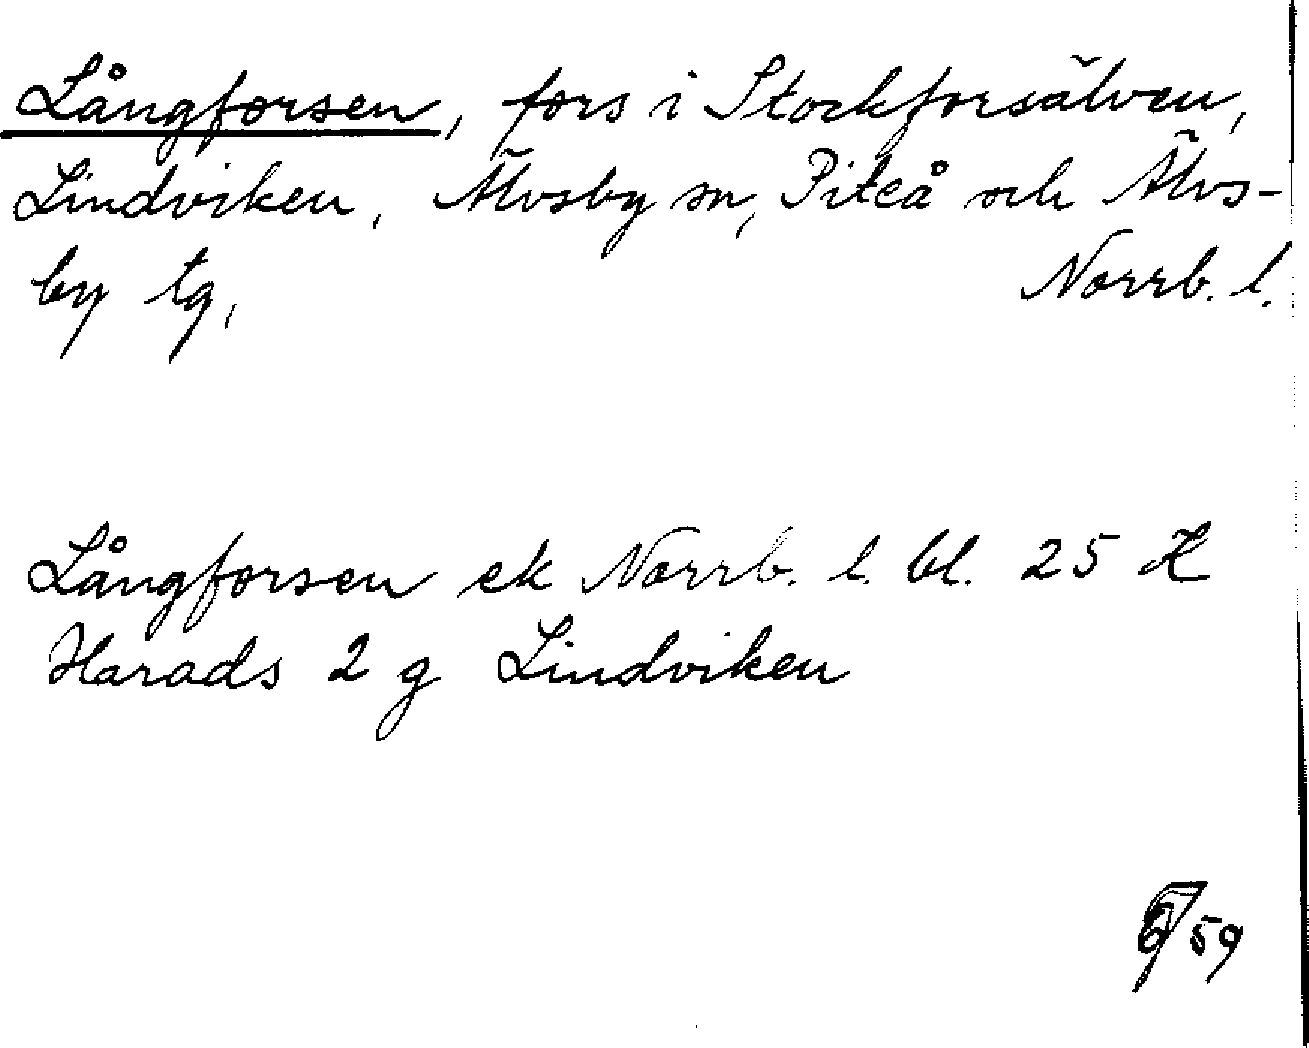 Långforsen, fors i Stockforsälven,
Lindviken, Älvsby sn, Piteå och Älvs-
by tg, Norrb. l.
Långforsen ek Norrb. l. bl. 25 K
Harads 2 g Lindviken
59